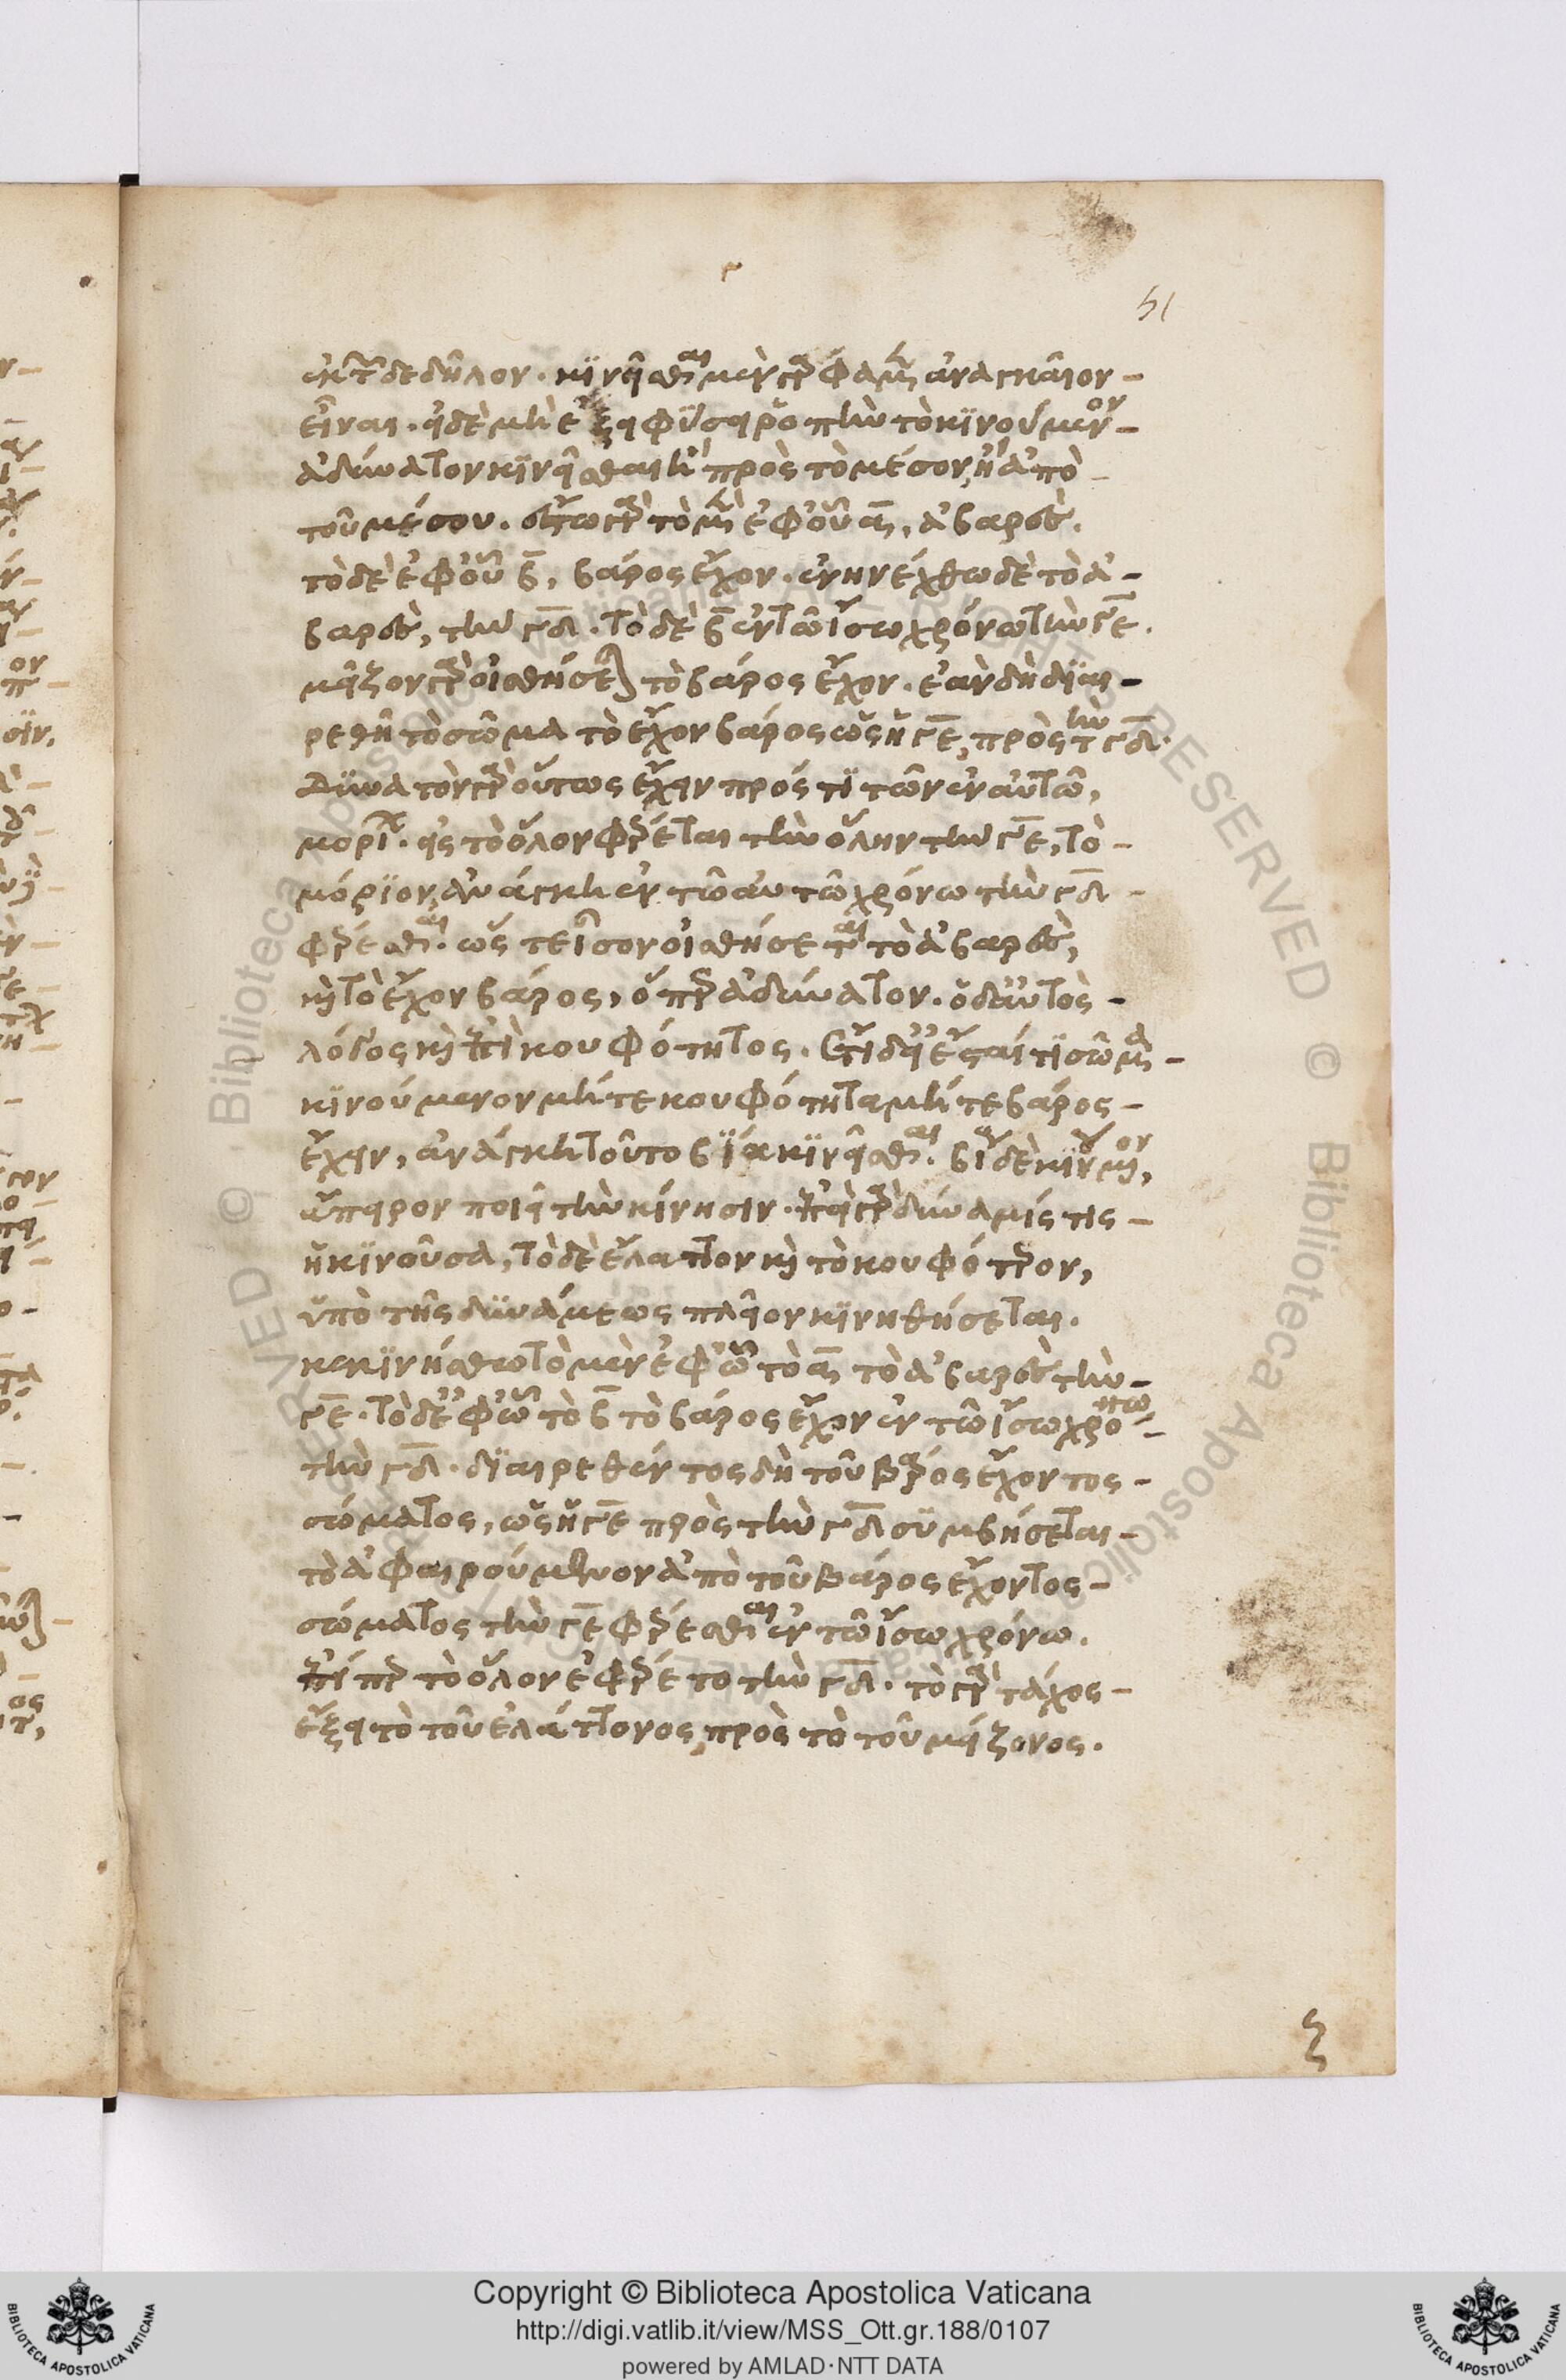 51
ἐκ τῶνδε δῆλον. κινεῖσθαι μὲν γὰρ φαμὲν ἀναγκαῖον
εἶναι. εἰ δὲ μὴ ἕξει φύσει ῥοπὴν τὸ κινούμενον
ἀδύνατον κινεῖσθαι ἢ πρὸς τὸ μέσον, ἢ ἀπὸ
τοῦ μέσου. ἔστω γὰρ τὸ μὲν ἐφ' οὗ α, ἀβαρὲς.
τὸ δὲ ἐφ' οὗ β, βάρος ἔχον. ἐνηνέχθω δὲ τὸ ἀ
βαρὲς, τὴν γδ. τὸ δὲ β ἐν τῶ ἴσω χρόνω τὴν γε.
μεῖζον γὰρ οἰσθήσεται τὸ βάρος ἔχον. ἐὰν δὴ διαι
ρεθῆ τὸ σῶμα τὸ ἔχον βάρος ὡς ἡ γε, πρὸς τὴν γδ.
δυνατὸν γὰρ οὕτως ἔχειν πρός τι τῶν ἐν αὐτῶ,
μορίων. εἰ τὸ ὅλον φέρεται τὴν ὅλην τὴν γε, τὸ
μόριον, ἀνάγκη ἐν τῶ αὐτῶ χρόνω τὴν γδ
φέρεσθαι. ὥστε ἴσον οἰσθήσεται τὸ ἀβαρὲς,
καὶ τὸ ἔχον βάρος, ὅπερ ἀδύνατον. ὁ δ' αὐτὸς
λόγος καὶ ἐπὶ κουφότητος. ἔτι δ' εἰ ἔσται τι σῶμα
κινούμενον μήτε κουφότητα μήτε βάρος
ἔχειν, ἀνάγκη τοῦτο βία κινεῖσθαι. βία δὲ κινούμενον,
ἄπειρον ποιεῖ τὴν κίνησιν. ἐπεὶ γὰρ δύναμίς τις
ἡ κινοῦσα, τὸ δὲ ἔλαττον καὶ τὸ κουφότερον,
ὑπὸ τῆς δυνάμεως πλεῖον κινηθήσεται.
κεκινήσθω τὸ μὲν ἐφ' ὧ τὸ α τὸ ἀβαρὲς τὴν
γε. τὸ δ' ἐφ' ὧ τὸ β τὸ βάρος ἔχον ἐν τῶ ἴσω χρόνω
τὴν γδ. διαιρεθέντος δὴ τοῦ βάρος ἔχοντος
σώματος, ὡς ἡ γε πρὸς τὴν γδ συμβήσεται
τὸ ἀφαιρούμενον ἀπὸ τοῦ βάρος ἔχοντος
σώματος τὴν γε φέρεσθαι ἐν τῶ ἴσω χρόνω.
ἐπείπερ τὸ ὅλον ἐφέρετο τὴν γδ. τὸ γὰρ τάχος
ἕξει τὸ τοῦ ἐλάττονος, πρὸς τὸ τοῦ μείζονος.
Copyright © Biblioteca Apostolica Vaticana
http://digi.vatlib.it/view/MSS_Ott.gr.188/0107
powered by AMLAD·NTT DATA